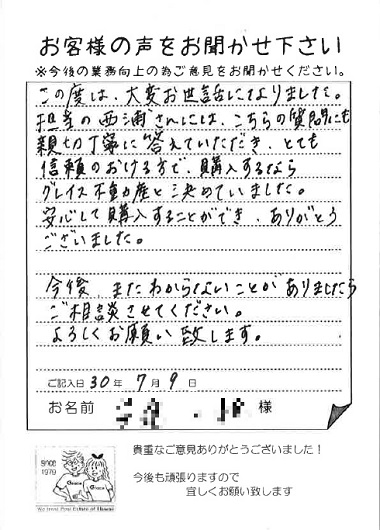 お客様の声をお聞かせ下さい
※今後の業務向上の為ご意見をお聞かせください。
この度は、大変お世話になりました。
担当の西浦さんには、こちらの質問にも
親切丁寧に答えていただき、とても
信頼のおける方で、購入するなら
グレイス不動産と決めていました。
安心して購入することができ、ありがとう
ございました。
今後、またわからないことがありましたら
ご相談させてください。
よろしくお願い致します。
ご記入日 30年 7月 9日
お名前 様
貴重なご意見ありがとうございました！
SINCE
1979
今後も頑張りますので
宜しくお願い致します